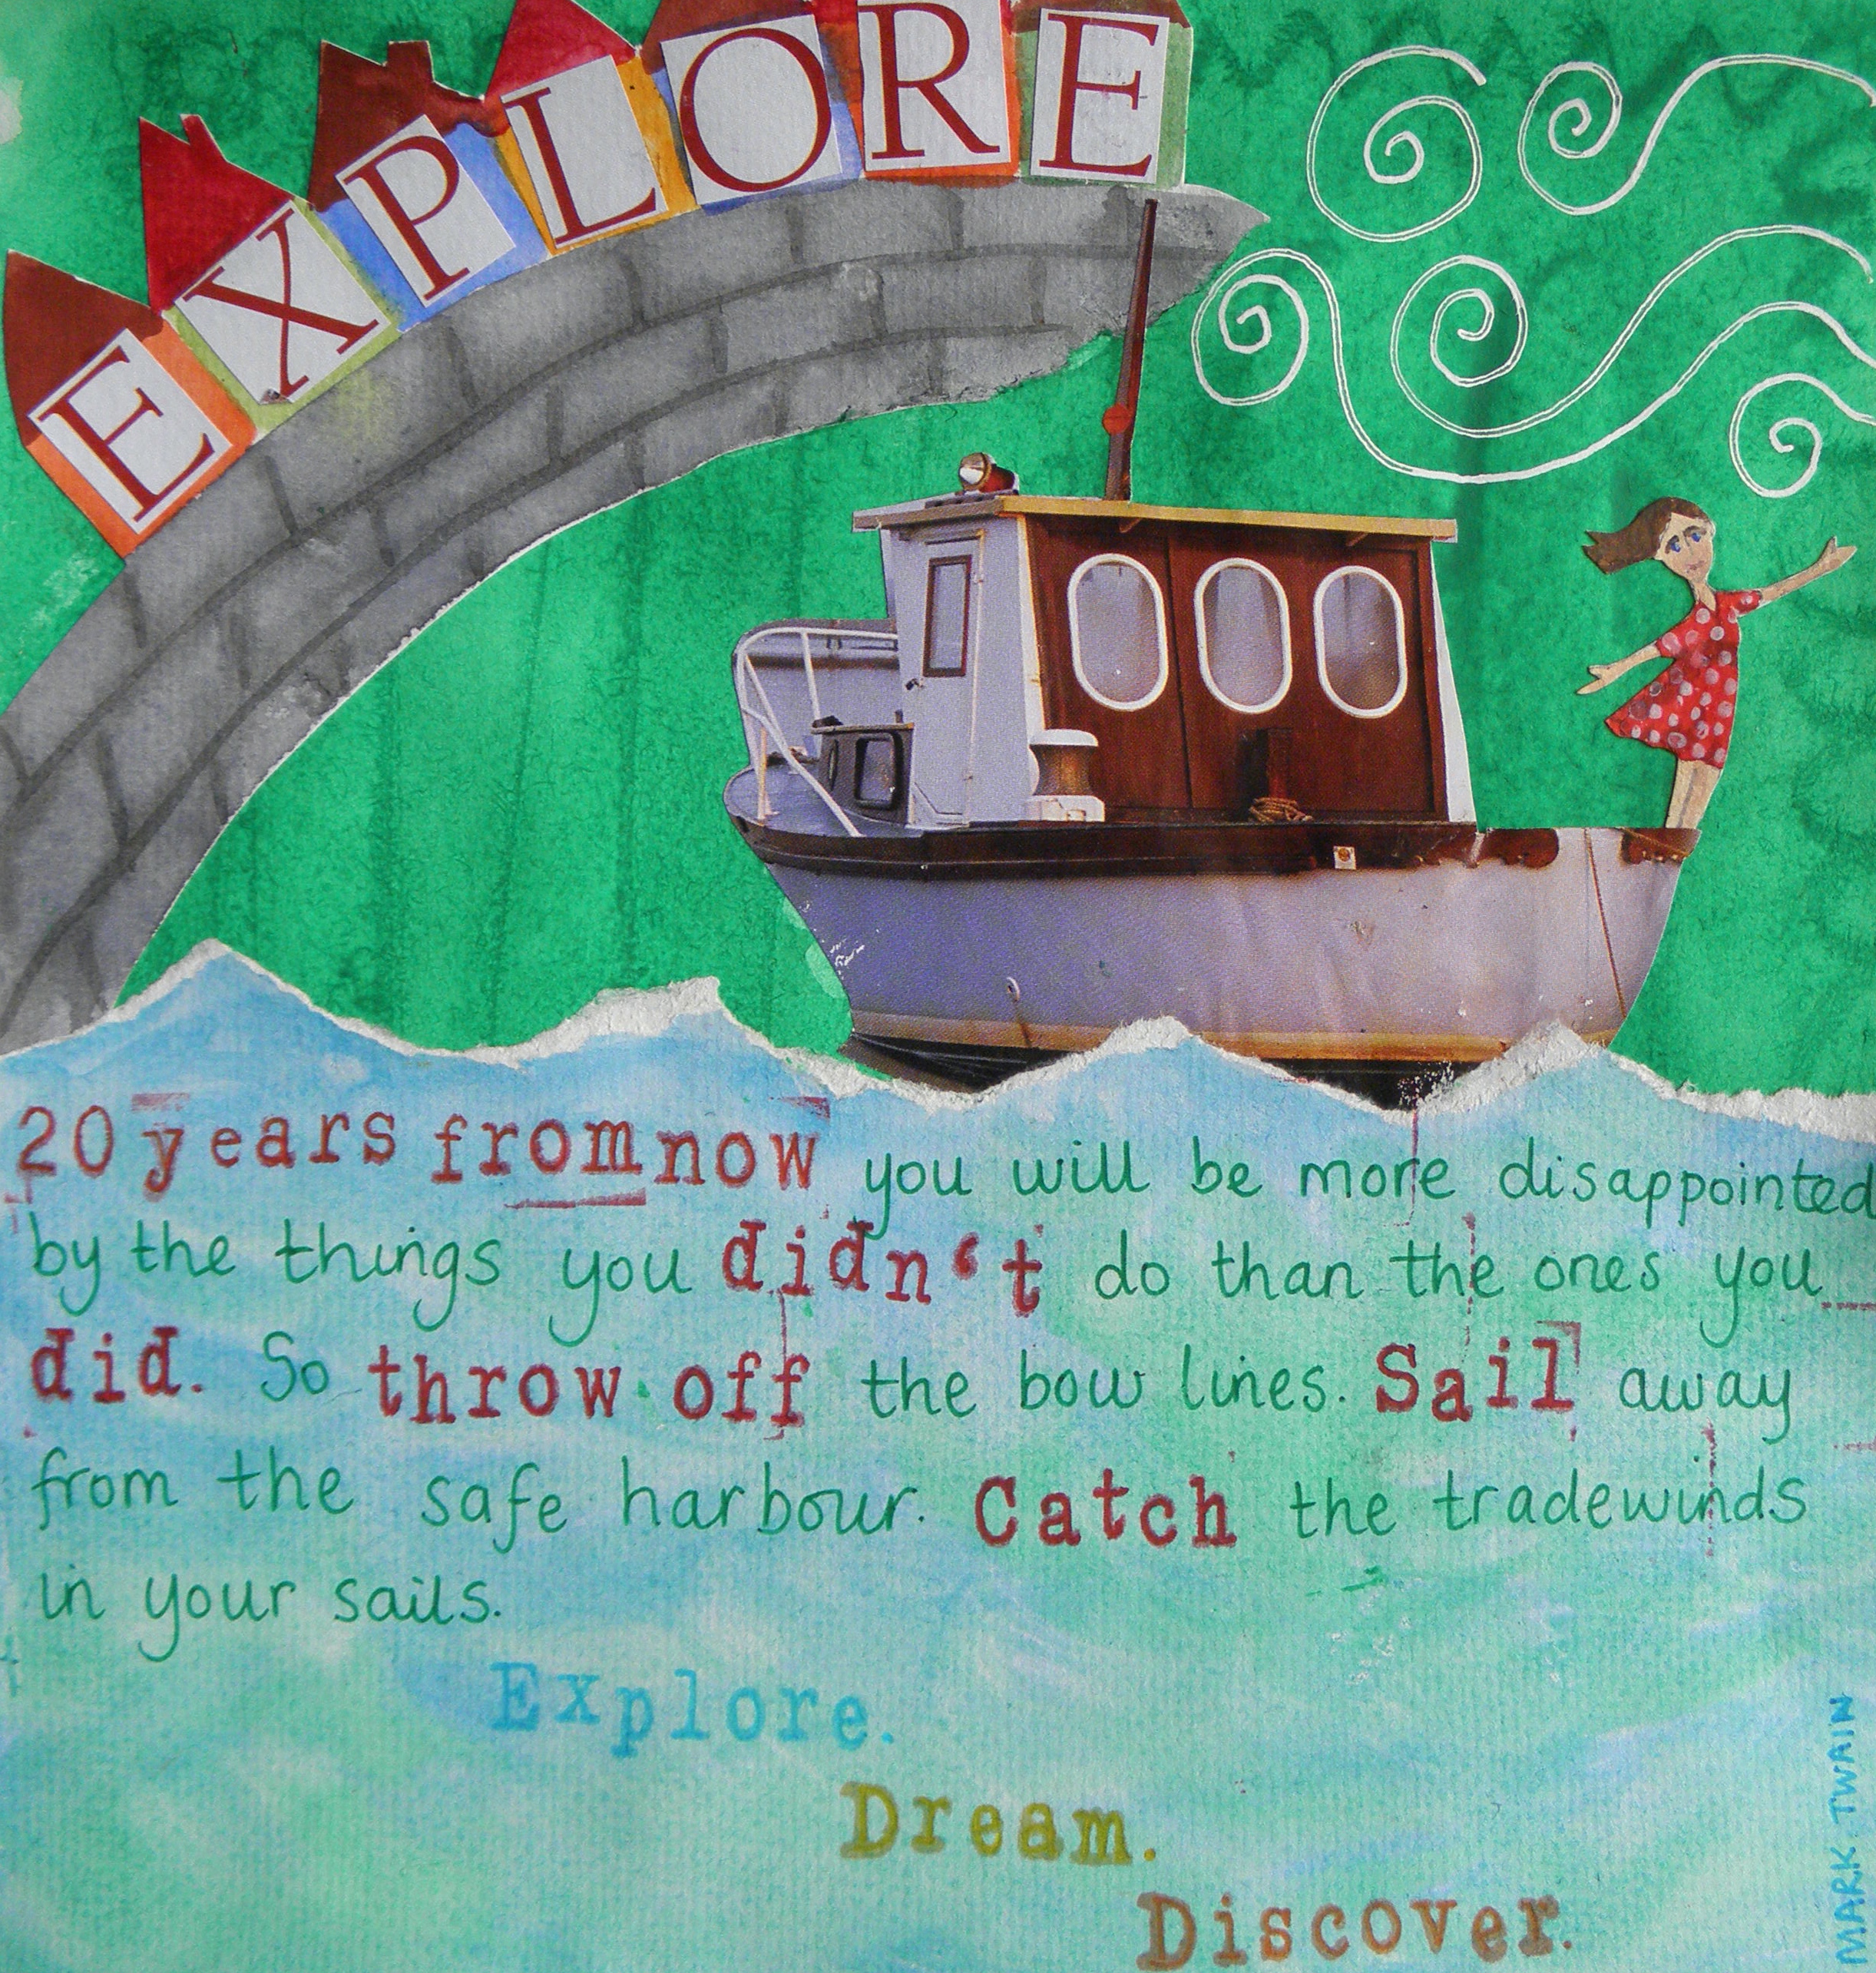 EXPLORE
20 years from now you will be more disappointed
by the things you didn't do than the ones you
did. So throw off the bow lines. Sail away
from the safe harbour. Catch the tradewinds
in your sails.
Explore.
Dream.
Discover.
MARK TWAIN